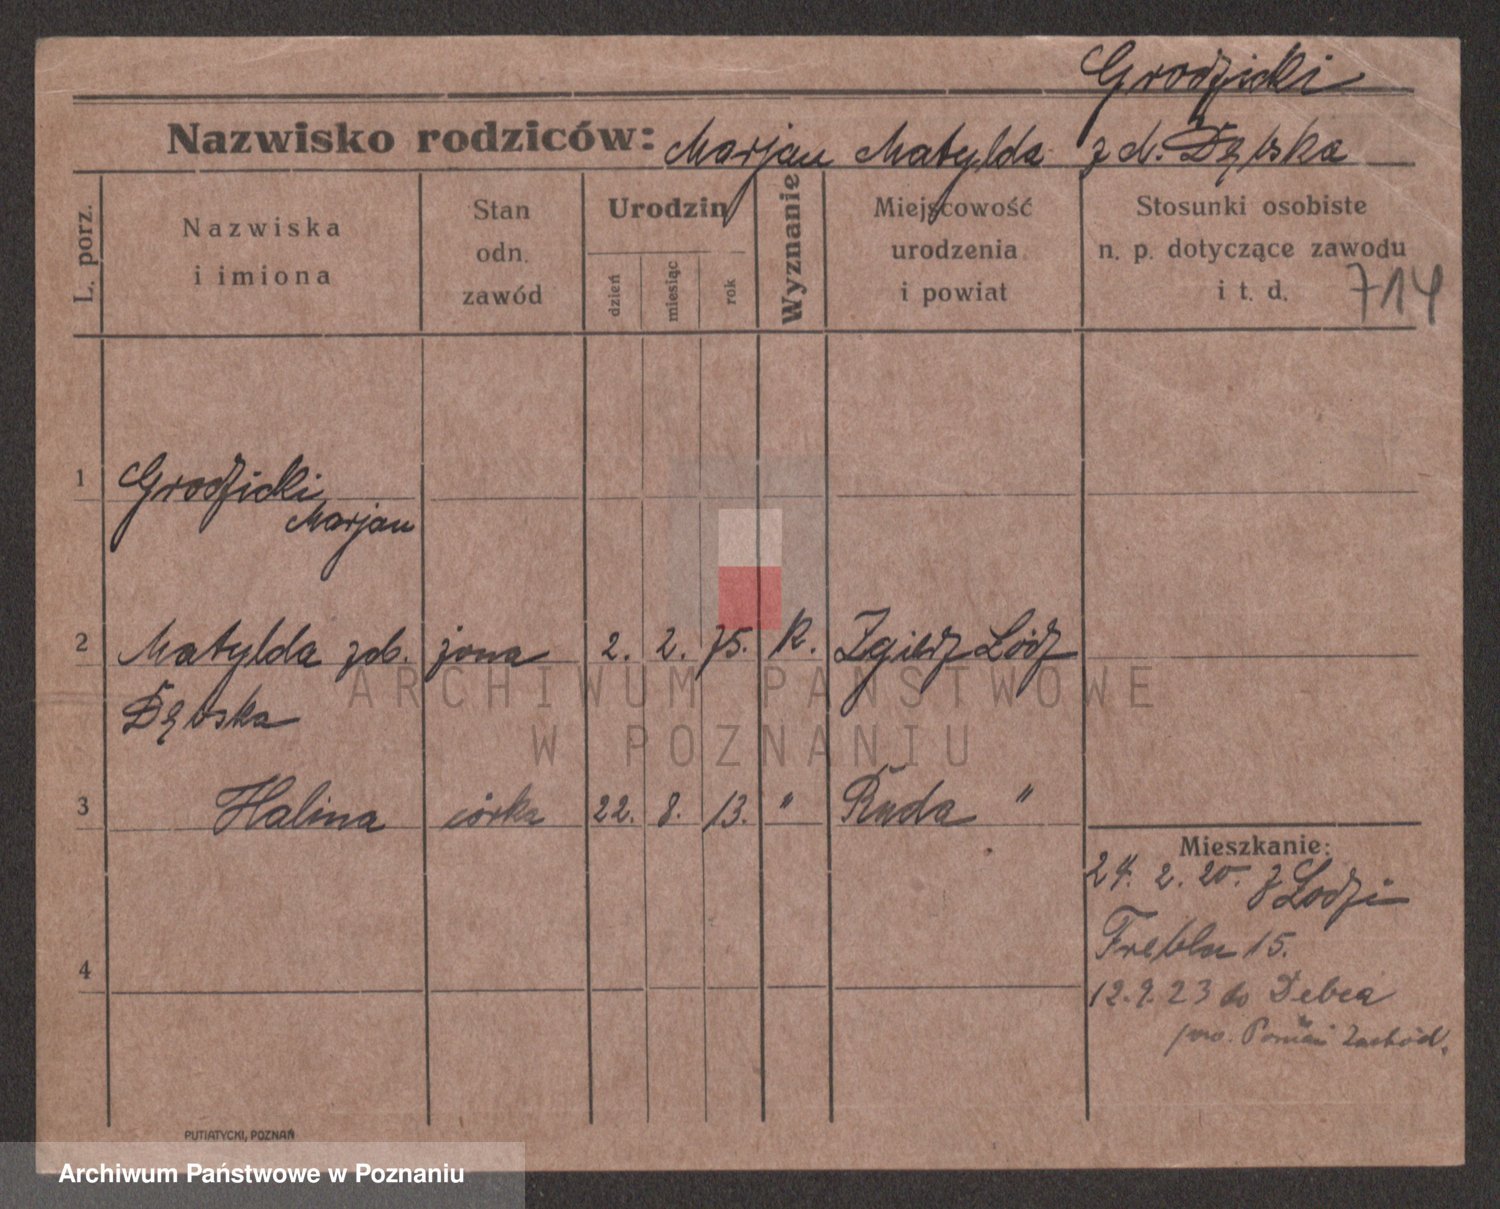 Grodzicki
Nazwisko rodziców: Marjan Matylda z d. Dębska
L. porz.
Nazwiska
i imiona
Stan
odn.
zawód
Urodzin
dzień
miesiąc
rok
Wyznanie
Miejscowość
urodzenia
i powiat
Stosunki osobiste
n. p. dotyczące zawodu
i t. d.
714
1 Grodzicki
Marjan
2 Matylda zdb. żona 2. 2. 75. k. Zgierz Łódź
Dębska
3 Halina córka 22. 8. 13. " Ruda "
Mieszkanie:
24. 2. 20. z Łodzi
12.9.23 do Dębca
pow. Poznań Zachód.
4
PUTIATYCKI, POZNAŃ
ARCHIWUM PAŃSTWOWE
W POZNANIU
Archiwum Państwowe w Poznaniu